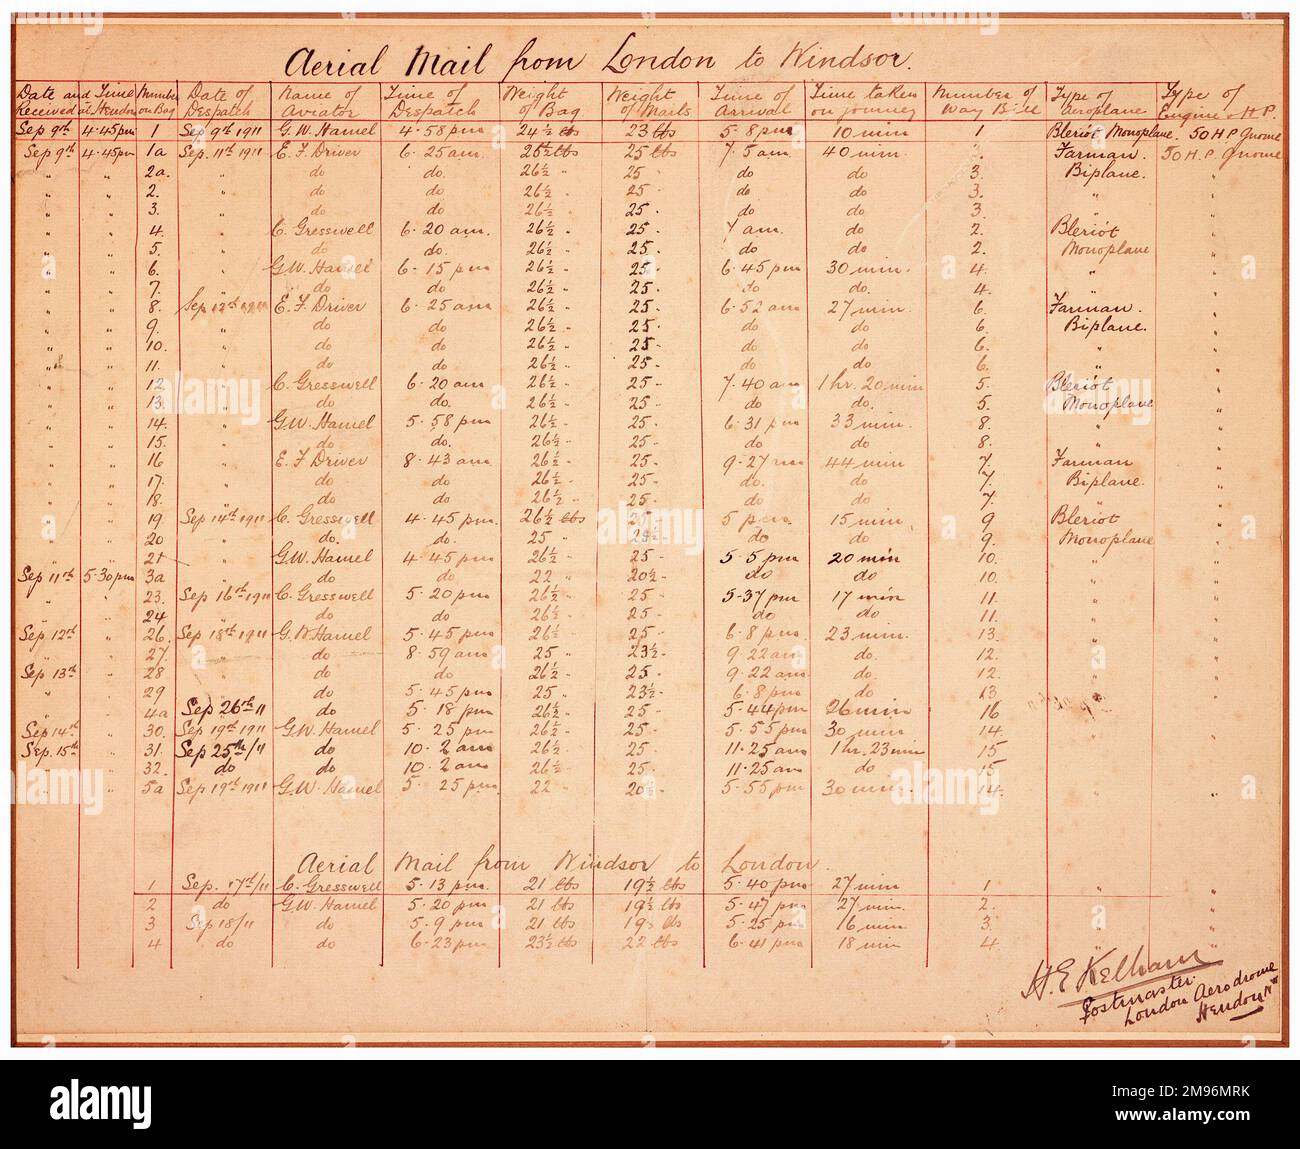 Aerial Mail from London to Windsor.
Date and Time Received at Hendon | Number on Bag | Date of Despatch | Name of Aviator | Time of Despatch | Weight of Bag | Weight of Mails | Time of Arrival | Time taken on journey | Number of Way Bill | Type of Aeroplane | Type of Engine & H.P.
Sep 9th 4·45pm 1 Sep 9th 1911 G.W. Hamel 4·58pm 24½ lbs 23 lbs 5·8pm 10 min 1 Bleriot Monoplane. 50 H.P. Gnome
Sep 9th 4·45pm 1a Sep. 11th 1911 E.F. Driver 6·25am. 26½ lbs 25 lbs 7·5am 40 min. 3. Farman. 50 H.P. Gnome
" " 2a. " do do. 26½ " 25 " do do 3. Biplane. "
" " 2. " do do 26½ " 25 " do do 3. " "
" " 3. " do do 26½ " 25 " do do 3. "
" " 4. " C. Gresswell 6·20am. 26½ " 25 " 7am do 2. Bleriot "
" " 5. " do do. 26½ " 25 " do do 2. Monoplane "
" " 6. " G.W. Hamel 6·15pm 26½ " 25 " 6·45pm 30 min. 4. " "
" " 7. " do do 26½ " 25 " do do. 4. "
" " 8. Sep 12th 1911 E.F. Driver 6·25am 26½ " 25 " 6·52am 27 min. 6. Farman. "
" " 9. " do do 26½ " 25 " do do 6. Biplane. "
" " 10. " do do 26½ " 25 " do do 6. " "
" " 11. " do do 26½ " 25 " do do 6. "
" " 12. " C. Gresswell 6·20am 26½ " 25 " 7·40am 1 hr. 20 min 5. Bleriot "
" " 13. " do do. 26½ " 25 " do do. 5. Monoplane "
" " 14. " G.W. Hamel 5·58pm 26½ " 25 " 6·31pm 33 min. 8. " "
" " 15. " do do. 26½ " 25 " do do 8. "
" " 16 " E.F. Driver 8·43am 26½ " 25 " 9·27am 44 min 7. Farman "
" " 17. " do do 26½ " 25 " do. do 7. Biplane. "
" " 18. " do do 26½ " 25 do do 7. " "
" " 19. Sep 14th 1911 C. Gresswell 4·45pm. 26½ lbs 25 " 5pm. 15 min. 9 Bleriot "
" " 20 " do. do. 25 " 23½ " do do 9. Monoplane "
" " 21 " G.W. Hamel 4·45pm 26½ " 25 " 5·5pm 20 min 10. " "
Sep 11th 5·30pm 3a " do do 22 " 20½ " do do 10. "
" " 23. Sep 16th 1911 C. Gresswell 5·20pm 26½ " 25 " 5·37pm 17 min 11. " "
" " 24 " do do 26½ " 25 " do do 11. "
Sep 12th " 26. Sep 18th 1911 G.W. Hamel 5·45pm 26½ " 25 " 6·8pm. 23 min. 13. " "
" " 27. " do 8·59am 25 " 23½ " 9·22am do. 12. "
Sep 13th " 28 " do do 26½ " 25 " 9·22am. do 12. " "
" " 29 " do 5·45pm 25 " 23½ " 6·8pm do 13 "
" " 4a Sep 26th 11 do 5·18pm 26½ " 25 " 5·44pm 26 min 16 " "
Sep 14th " 30. Sep 19th 1911 G.W. Hamel 5·25pm 26½ " 25 " 5·55pm 30 min 14. " "
Sep. 15th " 31. Sep 25th/11 do 10·2am 26½ " 25 " 11·25am 1 hr. 23 min 15 " "
" " 32. do do 10·2am 26½ " 25 " 11·25am do 15 "
" " 5a Sep 19th 1911 G.W. Hamel 5·25pm 22 " 20½ " 5·55pm 30 min. 14. " "
Aerial Mail from Windsor to London.
1 Sep. 17th/11 C. Gresswell 5·13pm. 21 lbs 19½ lbs 5·40pm 27 min 1 " "
2 do G.W. Hamel 5·20pm 21 lbs 19½ lbs 5·47pm 27 min. 2. "
3 Sep 18/11 do 5·9pm 21 lbs 19½ lbs 5·25pm 16 min 3. " "
4 do do 6·23pm 23½ lbs 22 lbs 6·41pm 18 min 4. " "
H.E. Kelham
Postmaster.
London Aerodrome
Hendon NW
alamy
Image ID: 2M96MRK
www.alamy.com